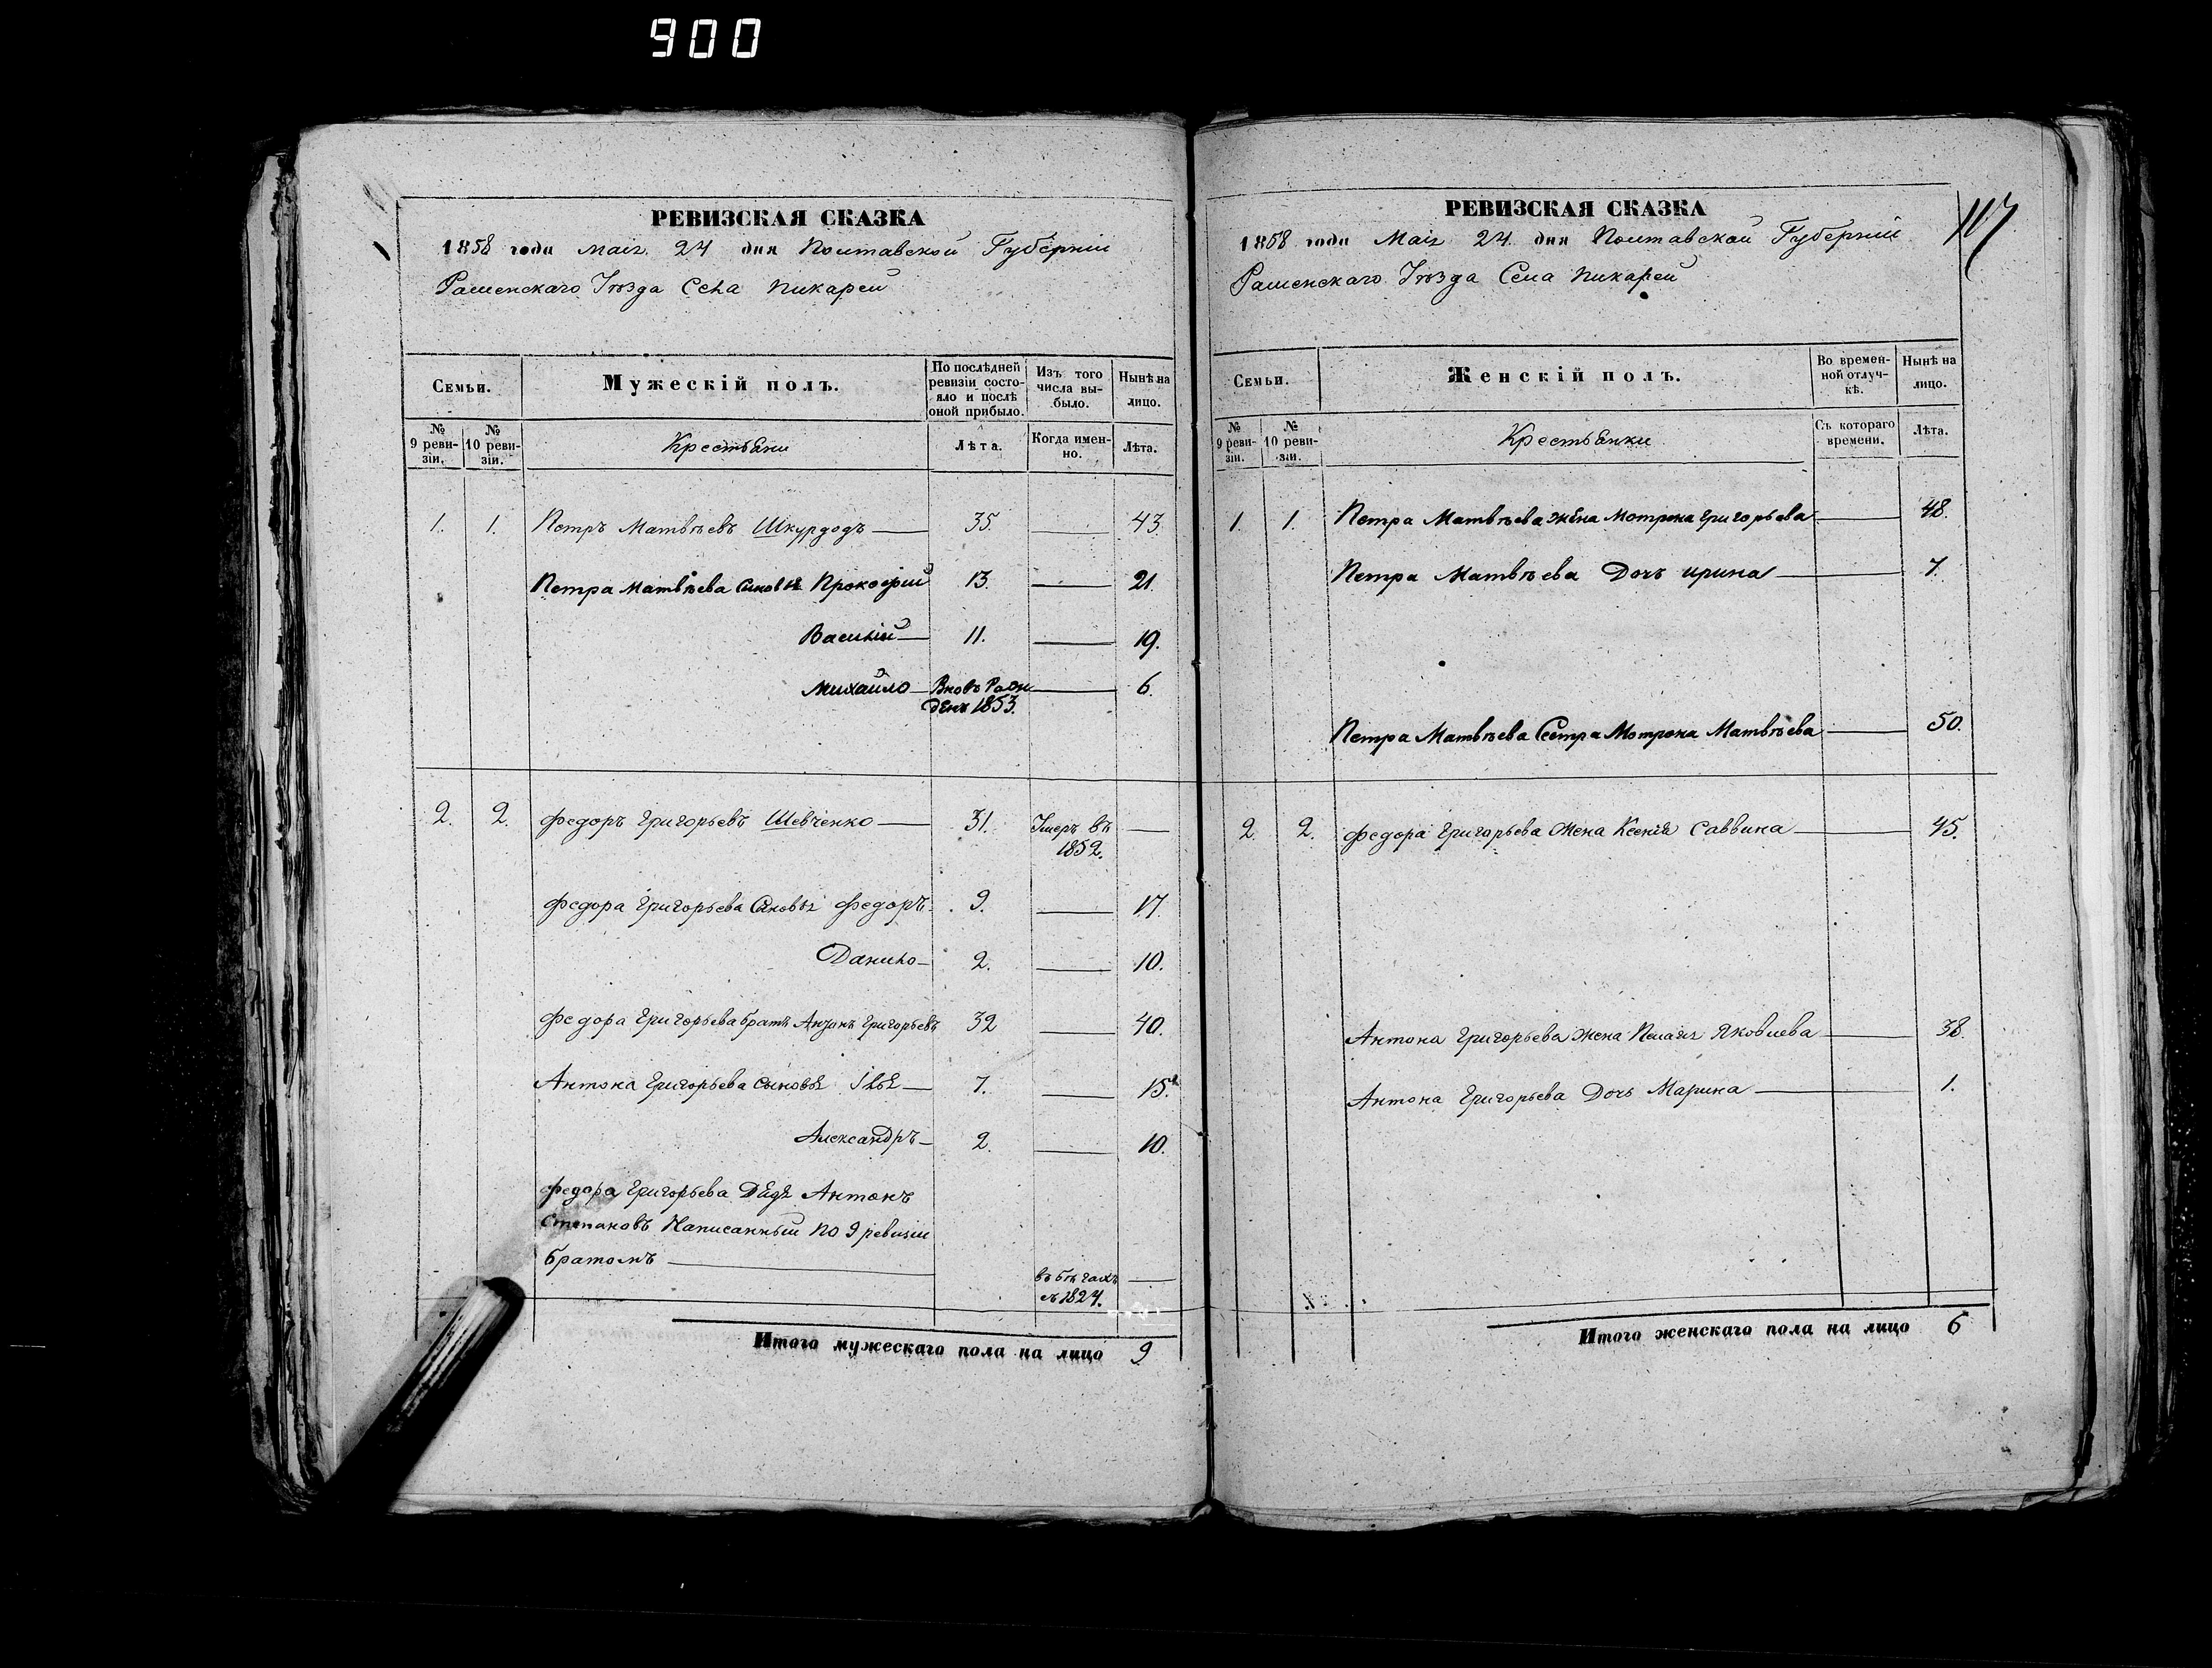 900
РЕВИЗСКАЯ СКАЗКА
1858 года Маія 24 дня Полтавской Губерніи
Уѣзда Села Пикарей
Семьи.
Мужескій полъ.
По послѣдней ревизіи состояло и послѣ оной прибыло.
Изъ того числа выбыло.
Ныне на лицо.
№ 9 ревизіи.
№ 10 ревизіи.
Крестьяни
Лѣта.
Когда именно.
Лѣта.
1. 1. Петръ Матвѣевъ Шкурдодъ 35. 43.
Петра Матвѣева Сыновья Прокофій 13. 21.
Василій 11. 19.
Михайло Вновь Рож 6.
денъ 1853.
2. 2. Федоръ Григорьевъ Шевченко 31. Умеръ въ
1852.
Федора Григорьева Сыновья Федоръ 9. 17.
Данило 2. 10.
Федора Григорьева братъ Антонъ Григорьевъ 32 40.
Антона Григорьева сыновья Илья 7. 15.
Александръ 2. 10.
Федора Григорьева Дядя Антонъ
Степановъ Написанный по 9 ревизіи
братомъ
въ бѣгахъ
съ 1824.
Итого мужескаго пола на лицо 9
117
РЕВИЗСКАЯ СКАЗКА
1858 года Маія 24 дня Полтавской Губерніи
Уѣзда Села Пикарей
Семьи.
Женскій полъ.
Во временной отлучкѣ.
Нынѣ на лицо.
№ 9 ревизіи.
№ 10 ревизіи.
Крестьянки
Съ котораго времени.
Лѣта.
1. 1. Петра Матвѣева жена Мотрона Григорьева 48.
Петра Матвѣева Дочъ Ирина 7.
Петра Матвѣева Сестра Мотрона Матвѣева 50.
2. 2. Федора Григорьева Жена Ксенія Саввина 45.
Антона Григорьева Жена Пелагія Яковлева 38.
Антона Григорьева Дочь Марина 1.
Итого женскаго пола на лицо 6